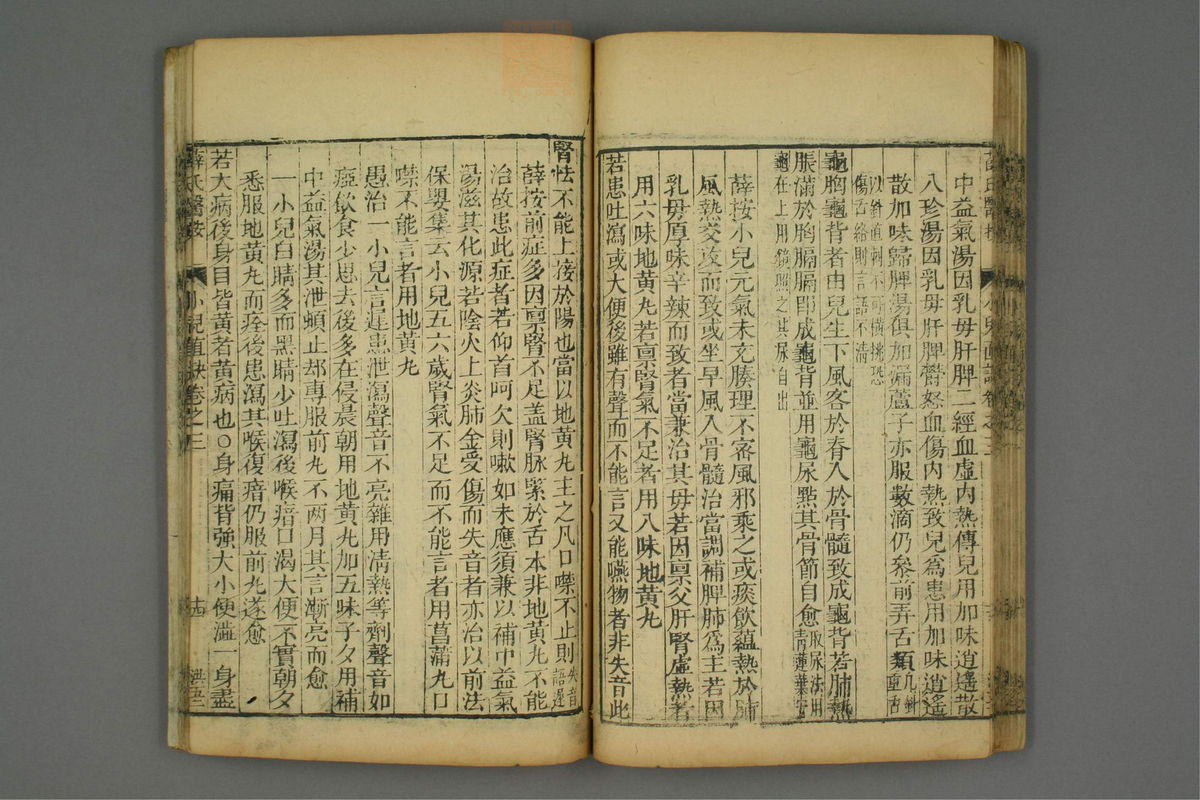 中益氣湯因乳母肝脾二經血虛內熱傳兒用加味逍遙散
八珍湯因乳母肝脾鬱怒血傷內熱致兒為患用加味逍遙
散加味歸脾湯俱加漏蘆子亦服數滴仍叅前弄舌類凡針重舌
以針直刺不可橫挑恐傷舌絡則言語不清
龜胸龜背者由兒生下風客於脊入於骨髓致成龜背若肺熱
脹滿於胸膈膈即成龜背並用龜尿點其骨節自愈取尿法用青蓮葉安
龜在上用鏡照之其尿自出
薛按小兒元氣未充腠理不密風邪乘之或痰飲蘊熱於肺
風熱交攻而致或坐早風入骨髓治當調補脾肺為主若因
乳母厚味辛辣而致者當兼治其母若因禀父肝腎虛熱者
用六味地黄丸若禀腎氣不足者用八味地黄丸
若患吐瀉或大便後雖有聲而不能言又能嚥物者非失音此
腎怯不能上接於陽也當以地黄丸主之凡口噤不止則失音語遲
薛按前症多因禀腎不足盖腎脉縈於舌本非地黄丸不能
治故患此症者若仰首呵欠則嗽如未應須兼以補中益氣
湯滋其化源若陰火上炎肺金受傷而失音者亦治以前法
保嬰集云小兒五六歲腎氣不足而不能言者用菖蒲丸口
噤不能言者用地黄丸
愚治一小兒言遲患泄瀉聲音不亮雜用清熱等劑聲音如
瘂飲食少思去後多在侵晨朝用地黄丸加五味子夕用補
中益氣湯其泄頓止却專服前丸不两月其言漸亮而愈
一小兒白睛多而黑睛少吐瀉後喉瘖口渴大便不實朝夕
悉服地黄丸而痊後患瀉其喉復瘖仍服前丸遂愈
若大病後身目皆黄者黄病也○身痛背強大小便澁一身盡
薛氏醫按 小兒直訣卷之三 十四 洪五三